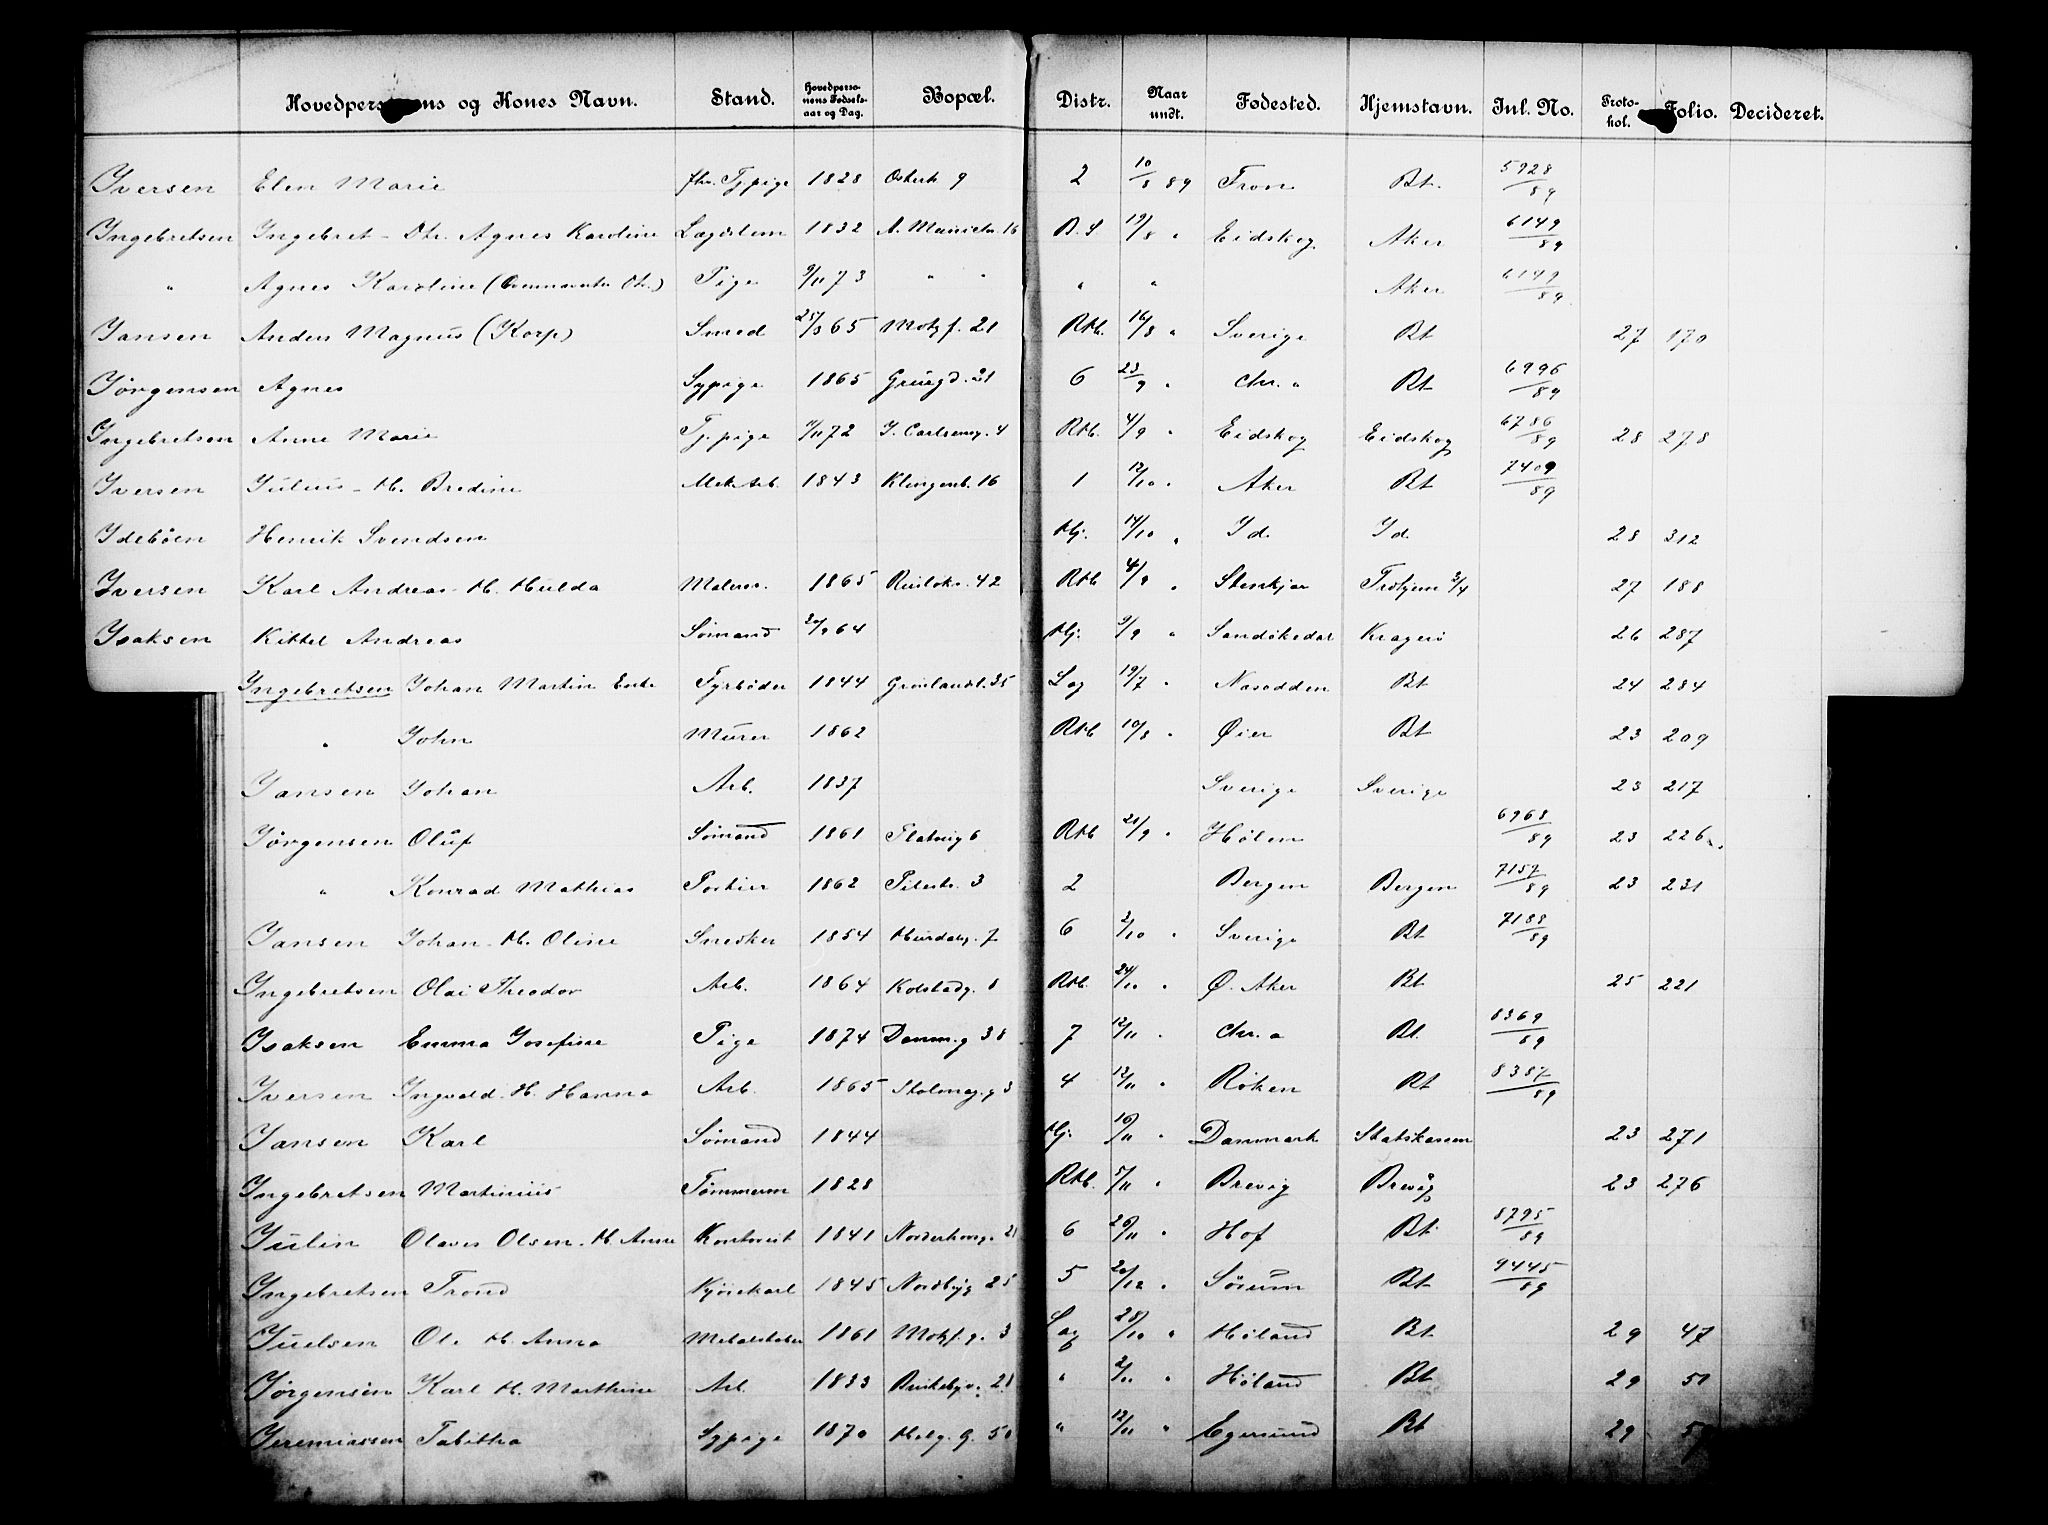 Hovedpersonens og Kones Navn. Stand. Hovedperso- nens Fødsels- aar og Dag. Bopæl. Distr. Naar undt. Fødested. Hjemstavn. Jnl. No. Proto- kol. Folio. Decideret.
Iversen Elen Marie Tj.pige 1828 9 2 10/8 89 Fron Bt. 5928/89
Ingebretsen Ingebret - Dtr. Agnes Karoline Lægdslem 1832 16 19/8 " Eidskog Aker 6149/89
" Agnes Karoline Pige 9/11 73 " " " " Aker 6149/89
Jansen Anders Magnus (Korp) Smed 65 Motzf. 21 Rtb. 16/8 " Sverige Bt 27 170
Jørgensen Agnes Sypige 1865 Grüegd. 21 6 23/9 " Chr. a Bt 6996/89
Ingebretsen Anne Marie Tj.pige 72 J. Carlsensg. 4 Rtb. 4/9 " Eidskog Eidskog 6786/89 28 278
Iversen Julius - H. Bredine Mek. Arb. 1843 Klingenb. 16 1 12/10 " Aker Bt 7409/89
Idebøen Henrik Svendsen Hj. 14/10 " Id. Id. 28 312
Iversen Karl Andreas - H. Hulda Malersv. 1865 Ruslökv. 42 Rtb 4/9 " Stenkjær Trohjem 3/4 27 188
Isaksen Kittel Andreas Sømand 64 Hj. 9/9 " Sandökedal Kragerö 26 287
Ingebretsen Johan Martin Enke Fyrbøder 1844 Grönlandsl. 35 Lag 19/7 " Nesodden Bt 24 284
" John Murer 1862 Rtb 10/8 " Øier Bt 23 209
Jansen Johan Arb. 1837 Sverige Sverige 23 217
Jørgensen Oluf Sømand 1861 Platousg 6 Rtb 21/9 " Hølen 6968/89 23 226
" Konrad Mathias Portier 1862 Pilestr. 3 2 Bergen Bergen 7157/89 23 231
Jansen Johan - H. Oline Snedker 1854 Hurdalsg. 7 6 2/10 " Sverige Bt 7188/89
Ingebretsen Olai Theodor Arb. 1864 Kolstadg. 8 Rtb. 24/10 " Ø. Aker Bt 25 221
Isaksen Emma Josefine Pige 1874 Danm.g 38 7 12/11 " Chr. a Bt. 8369/89
Iversen Ingvald. H. Hanna Arb. 1865 Stolmag.g 3 4 12/11 " Røken Bt 8387/89
Jansen Karl Sømand 1844 Hj. 16/11 " Danmark Statskassen 23 271
Ingebretsen Martinius Tømmerm 1828 Rtb. 5/11 " Brevig Brevig 23 276
Julin Olaves Olsen - H. Anne Kontorist 1841 Norderhovg. 21 6 26/11 " Hof Bt. 8795/89
Ingebretsen Trond Kjørekarl 1845 Nordbyg 25 5 20/12 " Sørum Bt 9445/89
Juelsen Ole H. Anna 1861 Motzf. g. 3 Lag 28/10 " Høland Bt. 29 47
Jørgensen Karl H. Marthine Arb. 1833 21 " 2/11 " Høland Bt. 29 50
Jeremiassen Tabitha Sypige 1870 Helg. G. 50 " 12/11 " Egersund Bt 29